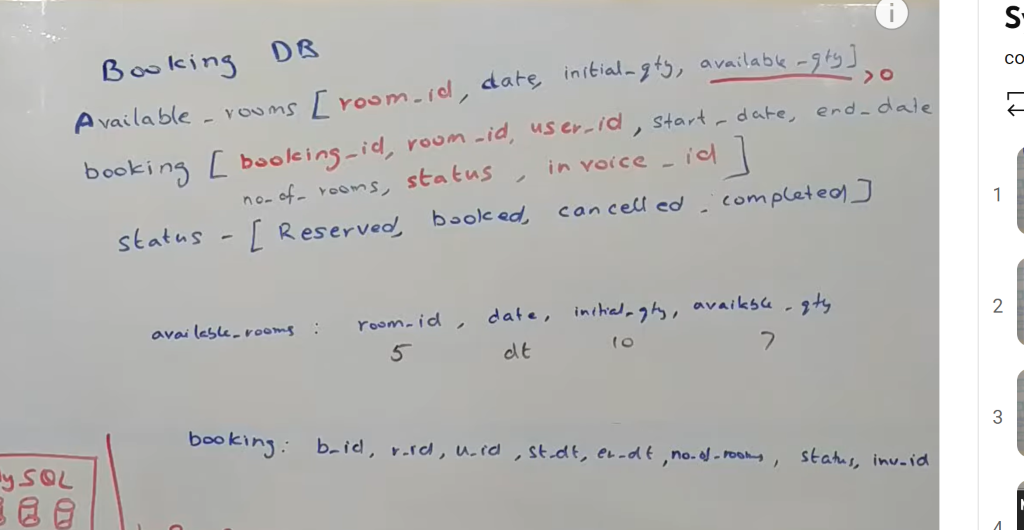 Booking DB
Available_rooms [room_id, date, initial_qty, available_qty] >0
booking [booking_id, room_id, user_id, start_date, end_date
no_of_rooms, status, invoice_id]
status - [Reserved, booked, cancelled, completed]
available_rooms : room_id, date, initial_qty, available_qty
5 dt 10 7
booking: b_id, r_id, u_id, st_dt, en_dt, no_of_rooms, status, inv_id
ySQL
1
2
3
4